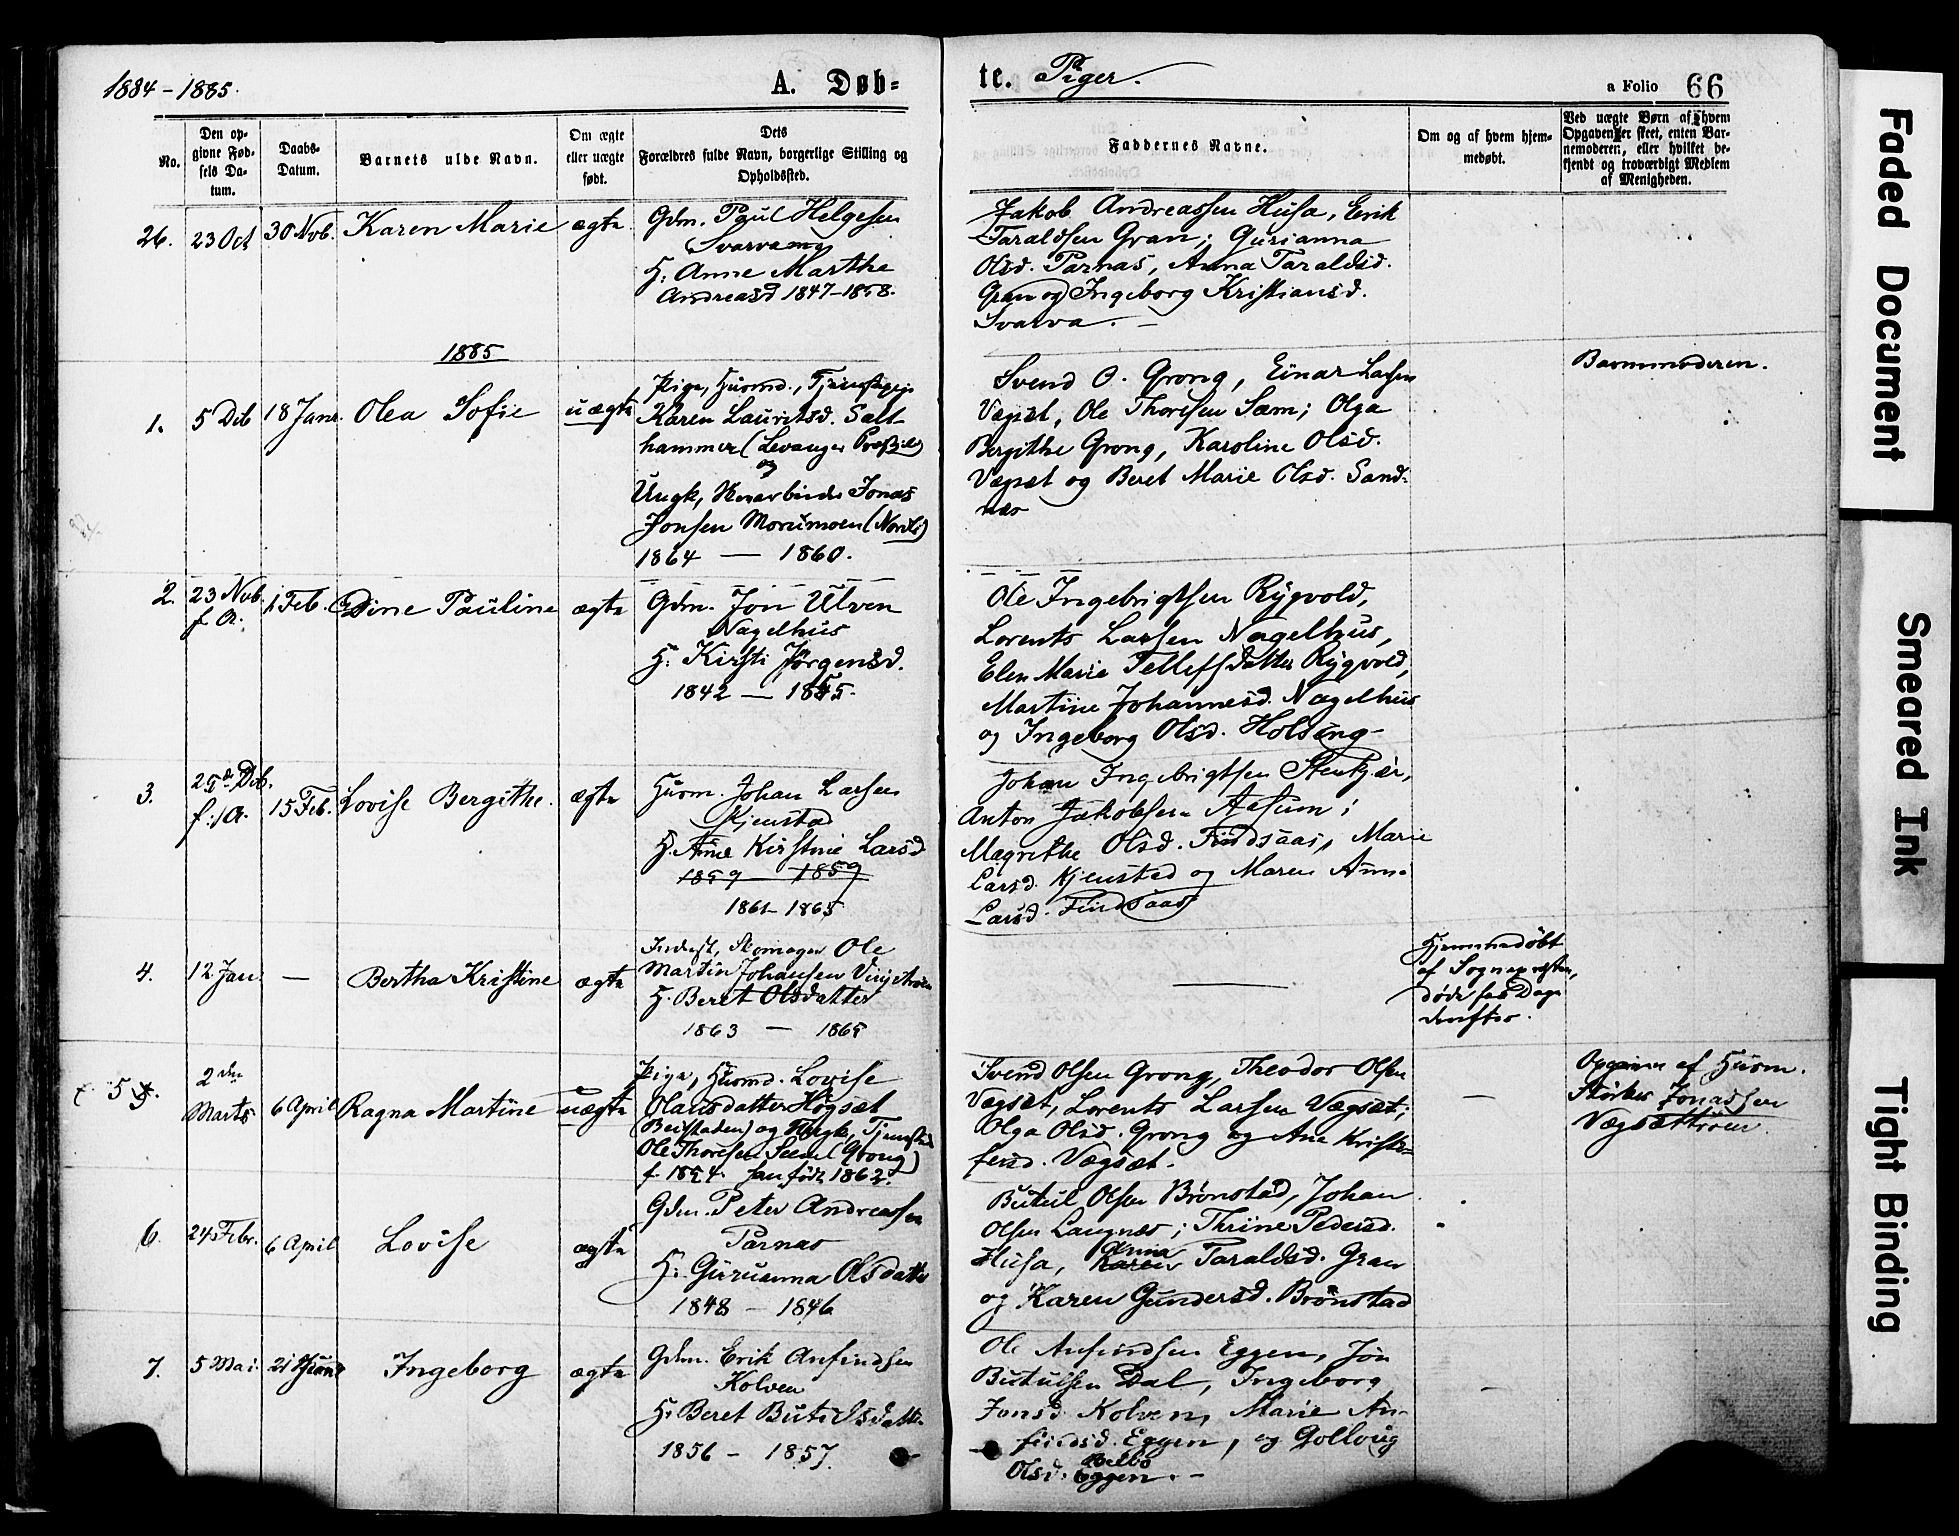 1884-1885.
A. Døb=
te. Piger.
a Folio 66
No.
Den op-
givne Fød-
sels Da-
tum.
Daabs-
Datum.
Barnets fulde Navn.
Om ægte
eller uægte
født.
Dets
Forældres fulde Navn, borgerlige Stilling og
Opholdssted.
Faddernes Navne.
Om og af hvem hjem-
medøbt.
Ved uægte Børn af hvem
Opgaven er skeet, enten Bar-
nemoderen, eller hvilket be-
kjendt og troværdigt Medlem
af Menigheden.
26.
23 Oct
30 Nov.
Karen Marie
ægte
Gdm. Paul Helgesen
Svarva
H. Anne Marthe
Andreasd 1847-1858.
Jakob Andreassen Husa, Erik
Taraldsen Gran; Gurianna
Olsd. Parnas, Anna Taraldsd.
Gran og Ingeborg Kristiansd.
Svarva.
1885
1.
5 Deb
18 Janr.
Olea Sofie
uægte
Pige, Husmd., Tjenestepige
Karen Lauritsd. Salt-
hammer (Levanger
og
Ungk, Jonas
Jonsen Morumoen (Nordli)
1864 — 1860.
Svend O. Grong, Einar Larsen
Vægset, Ole Thoresen Sæm; Olga
Bergithe Grong, Karoline Olsd.
Vægset og Beret Marie Olsd. Sand-
næs
Barnmoderen.
2.
23 Nov.
f. A.
1 Feb.
Dine Pauline
ægte
Gdm. Jon Ulven
Nagelhus
H. Kirsti Jørgensd.
1842 — 1855.
Ole Ingebrigtsen Rygvold,
Lorents Larsen Nagelhus,
Elen Marie Tellefsdatter Rygvold,
Martine Johannesd. Nagelhus
og Ingeborg Olsd. Holsing-
3.
25de Deb.
f. A.
15 Feb.
Lovise Bergithe.
ægte
Husm. Johan Larsen
Kjenstad
H. Ane Kirstine Larsd
1859 1859
1861-1865
Johan Ingebrigtsen Stenkjær,
Anton Jakobsen Aasum;
Magrethe Olsd. Findsaas, Marie
Larsd. Kjenstad og Maren Anne
Larsd. Findsaas
4.
12 Jan.
—
Bertha Kristine
ægte
Inderst, Skomager Ole
Martin Johansen
H. Beret Olsdatter
1863 — 1865
Hjemmedøbt
af Sognepræsten,
døde faa Dage
derefter.
5
2den
Marts
6 April
Ragna Martine
uægte
Pige, Husmd. Lovise
Olausdatter Høgset
(Beitstaden) og Ungk, Tjenestek
Ole Thoresen Seem (Grong)
f. 1854. han født 1862.
Svend Olsen Grong, Theodor Olsen
Vægset, Lorents Larsen Vægset;
Olga Olsd. Grong og Ane Kristo-
fersd. Vægset.
—
Opgiven af Husm.
Størker Jonassen
Vægsættrøen.
6.
24 Febr.
6 April
Lovise
ægte
Gdm. Peter Andreassen
Parnas
H. Gurianna Olsdatter
1848 - 1846
Butul Olsen Brønstad, Johan
Olsen Langnes; Thrine Pedersd.
Husa, Karen Anna Taraldsd. Gran
og Karen Gundersd. Brønstad
7.
5 Mai.
21 Juni
Ingeborg
ægte
Gdm. Erik Anfindsen
Kolven
H. Beret Butulsdatter
1856 - 1857.
Ole Anfindsen Eggen, Jon
Butulsen Dal, Ingeborg
Jonsd. Kolven, Marie An-
findsd. Eggen, og Gollaug
Olsd. Eggen.
Faded Document
Smeared Ink
Tight Binding